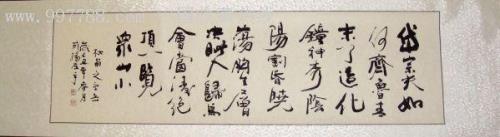 www.997788.com
岱宗夫如
何齊魯青
未了造化
鍾神秀陰
陽割昏曉
蕩胸生層
決眥入歸鳥
會當凌絕
頂一覽
眾山小